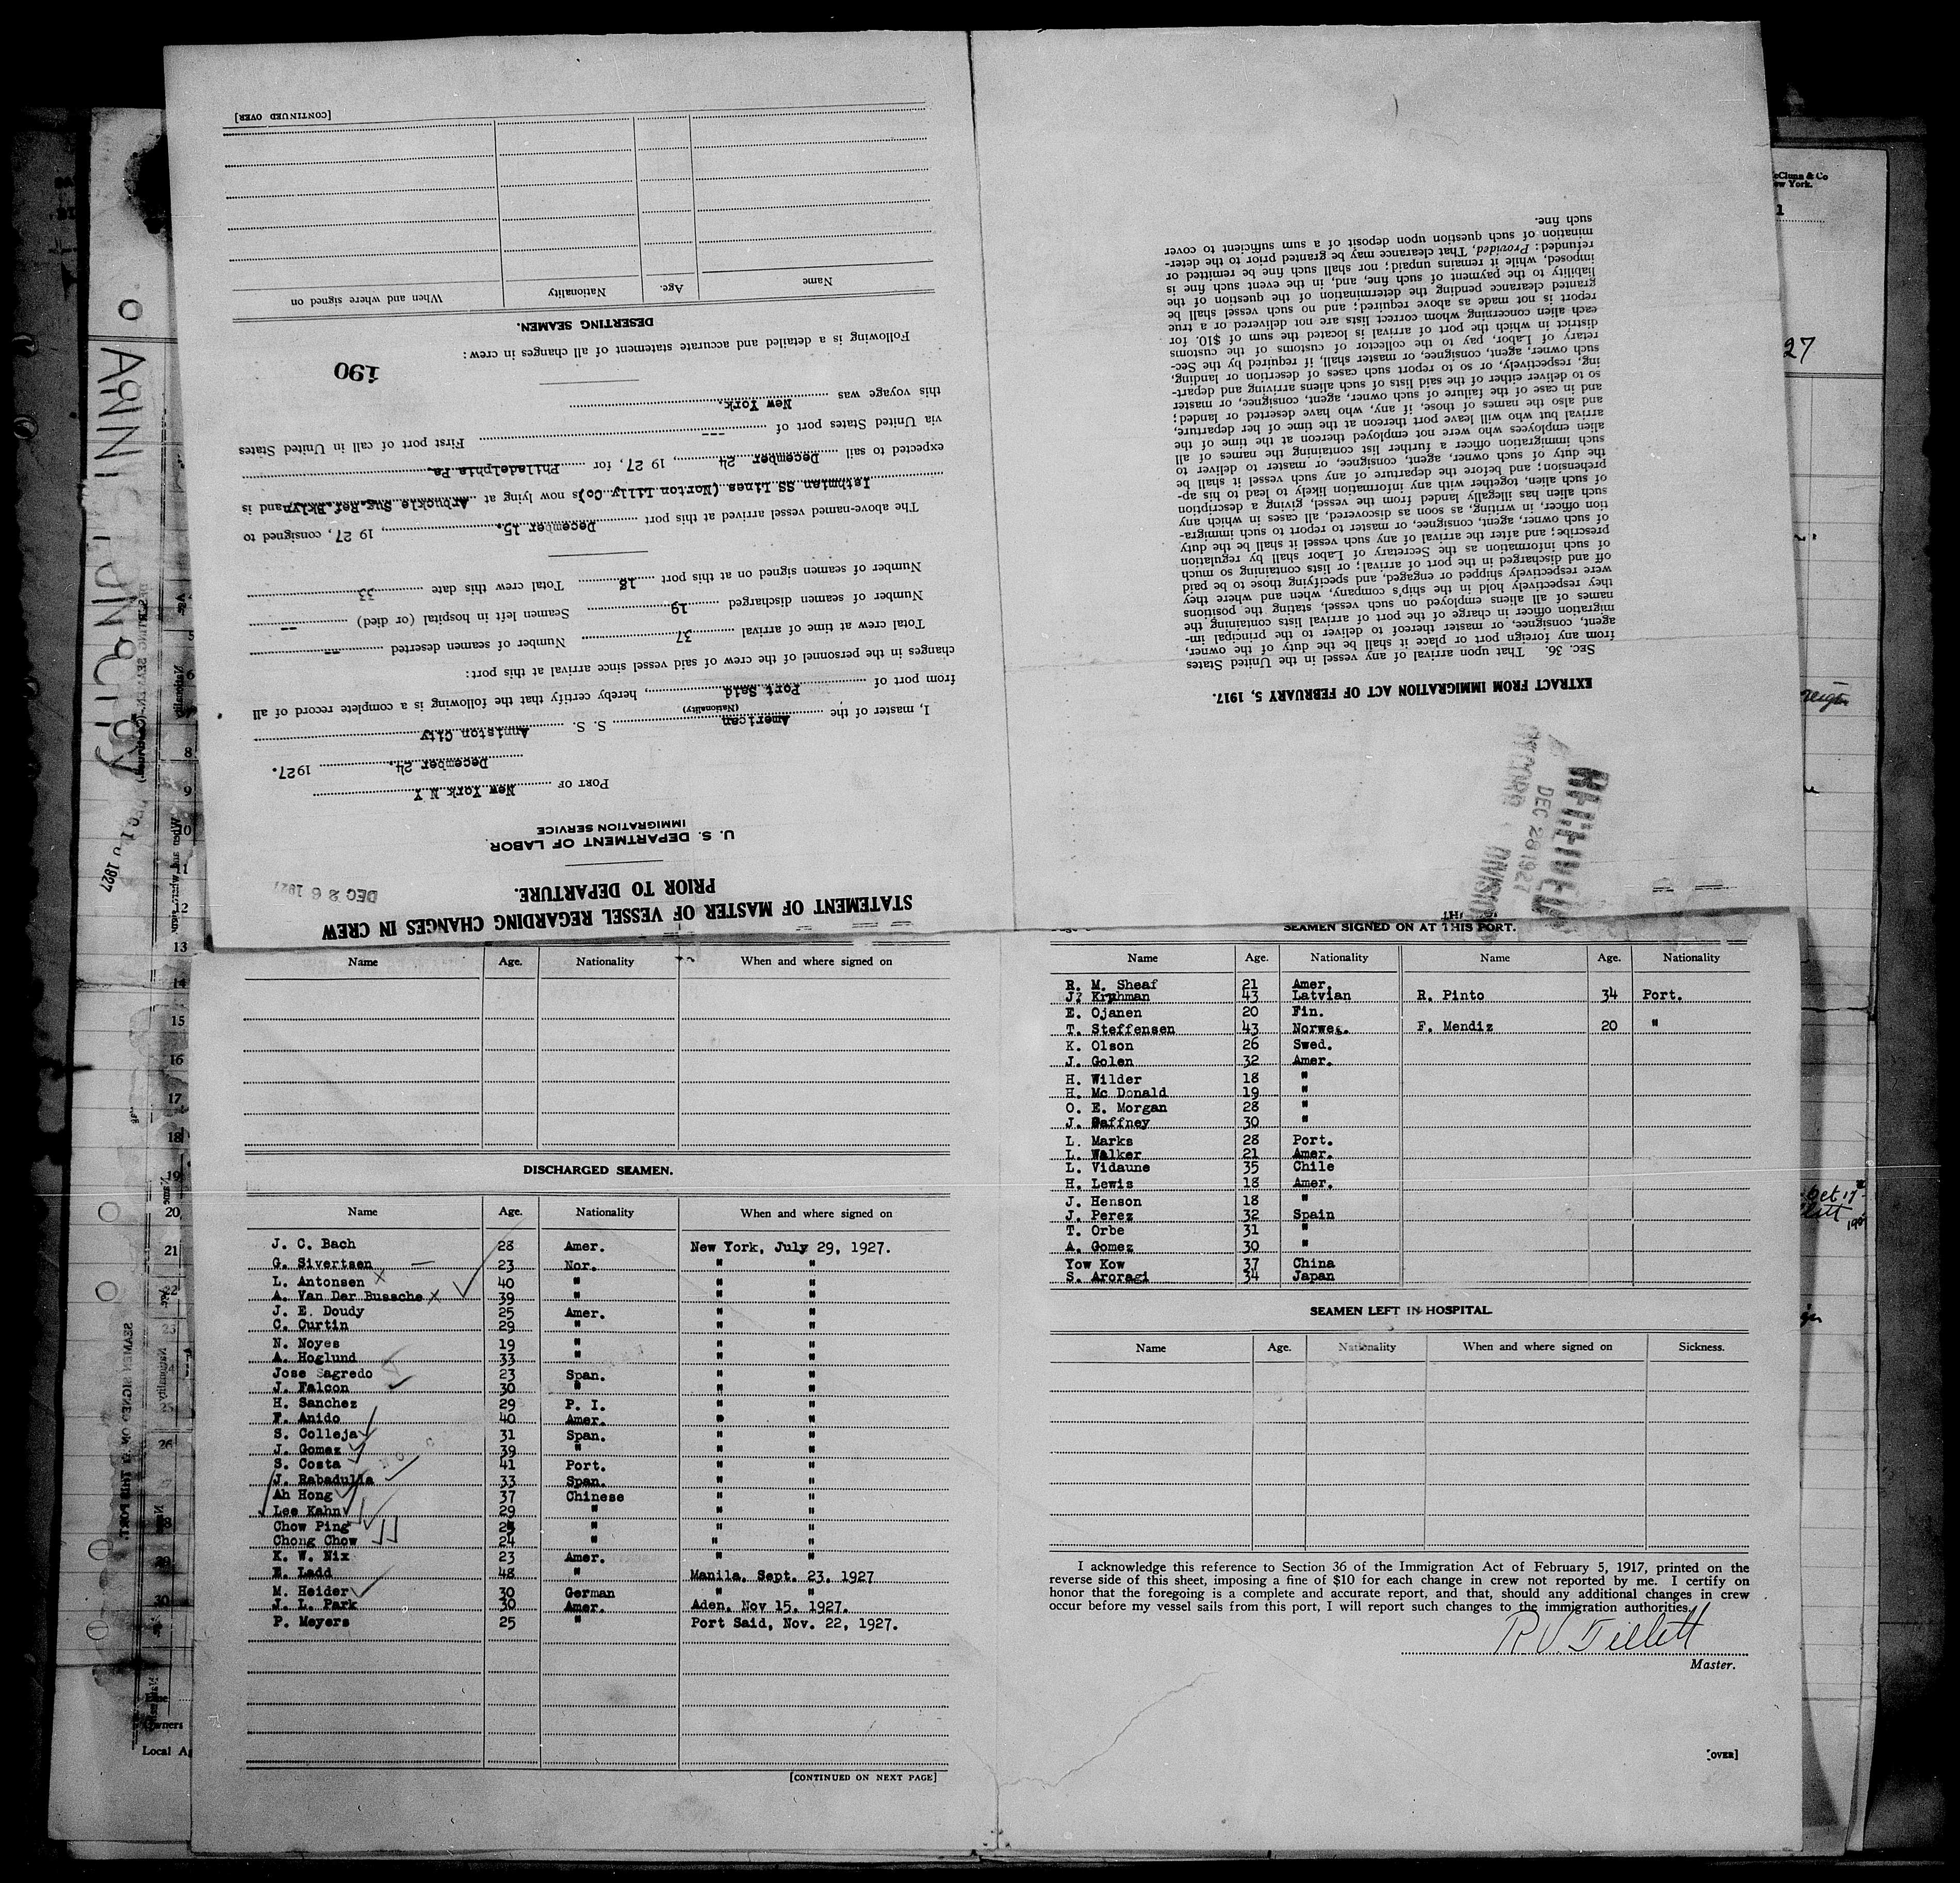 STATEMENT OF MASTER OF VESSEL REGARDING CHANGES IN CREW
PRIOR TO DEPARTURE.
DEC 26 1927
U. S. DEPARTMENT OF LABOR
IMMIGRATION SERVICE
PORT OF New York N Y
December 24, 1927.
I, master of the American S. S. Anniston City
(Nationality)
from port of Port Said, hereby certify that the following is a complete record of all
changes in the personnel of the crew of said vessel since arrival at this port:
Total crew at time of arrival 37 Number of seamen deserted --
Number of seamen discharged 19 Seamen left in hospital (or died) --
Number of seamen signed on at this port 18 Total crew this date 33
The above-named vessel arrived at this port December 15, 1927, consigned to
Isthmian SS Lines (Norton Lilly Co) is now lying at Arbuckle Sug.Ref.Bklyn and is
expected to sail December 24, 1927, for Philadelphia Pa
via United States port of -- First port of call in United States
this voyage was New York.
190
Following is a detailed and accurate statement of all changes in crew:
DESERTING SEAMEN.
Name Age. Nationality When and where signed on
[CONTINUED OVER]
RECORD DIVISION
DEC 28 1927
EXTRACT FROM IMMIGRATION ACT OF FEBRUARY 5, 1917.
SEC. 36. That upon arrival of any vessel in the United States
from any foreign port or place it shall be the duty of the owner,
agent, consignee, or master thereof to deliver to the principal im-
migration officer in charge of the port of arrival lists containing the
names of all aliens employed on such vessel, stating the positions
they respectively hold in the ship's company, when and where they
were respectively shipped or engaged, and specifying those to be paid
off and discharged in the port of arrival; or lists containing so much
of such information as the Secretary of Labor shall by regulation
prescribe; and after the arrival of any such vessel it shall be the duty
of such owner, agent, consignee, or master to report to such immigra-
tion officer, in writing, as soon as discovered, all cases in which any
such alien has illegally landed from the vessel, giving a description
of such alien, together with any information likely to lead to his ap-
prehension; and before the departure of any such vessel it shall be
the duty of such owner, agent, consignee, or master to deliver to
such immigration officer a further list containing the names of all
alien employees who were not employed thereon at the time of the
arrival but who will leave port thereon at the time of her departure,
and also the names of those, if any, who have deserted or landed;
and in case of the failure of such owner, agent, consignee, or master
so to deliver either of the said lists of such aliens arriving and depart-
ing, respectively, or so to report such cases of desertion or landing,
such owner, agent, consignee, or master shall, if required by the Sec-
retary of Labor, pay to the collector of customs of the customs
district in which the port of arrival is located the sum of $10. for
each alien concerning whom correct lists are not delivered or a true
report is not made as above required; and no such vessel shall be
granted clearance pending the determination of the question of the
liability to the payment of such fine, and, in the event such fine is
imposed, while it remains unpaid; nor shall such fine be remitted or
refunded: Provided, That clearance may be granted prior to the deter-
mination of such question upon deposit of a sum sufficient to cover
such fine.
Name Age. Nationality When and where signed on
DISCHARGED SEAMEN.
Name Age. Nationality When and where signed on
J. C. Bach 28 Amer. New York, July 29, 1927.
G. Sivertsen 23 Nor. " "
L. Antonsen 40 " " "
A. Van Der Bussche 39 " " "
J. E. Doudy 25 Amer. " "
C. Curtin 29 " " "
N. Noyes 19 " " "
A. Hoglund 33 " " "
Jose Sagredo 23 Span. " "
J. Falcon 30 " " "
H. Sanchez 29 P. I. " "
F. Anido 40 Amer. " "
S. Colleja 31 Span. " "
J. Gomez 39 " " "
S. Costa 41 Port. " "
J. Rabadulla 33 Span. " "
Ah Hong 37 Chinese " "
Lee Kahn 29 " " "
Chow Ping " " "
Chong Chow 24 " " "
K. W. Nix 23 Amer. " "
E. Ladd 48 " Manila, Sept. 23, 1927
M. Heider 30 German " "
J. L. Park 30 Amer. Aden, Nov 15, 1927.
P. Meyers 25 " Port Said, Nov. 22, 1927.
[CONTINUED ON NEXT PAGE]
SEAMEN SIGNED ON AT THIS PORT.
Name Age. Nationality Name Age. Nationality
R. M. Sheaf 21 Amer.
J. Kruhman 43 Latvian R. Pinto 34 Port.
E. Ojanen 20 Fin.
T. Steffensen 43 Norweg. F. Mendiz 20 "
K. Olson 26 Swed.
J. Golen 32 Amer.
H. Wilder 18 "
H. Mc Donald 19 "
O. E. Morgan 28 "
J. Gaffney 30 "
L. Marks 28 Port.
L. Walker 21 Amer.
L. Vidaune 35 Chile
H. Lewis 18 Amer.
J. Henson 18 "
J. Perez 32 Spain
T. Orbe 31 "
A. Gomez 30 "
Yow Kow 37 China
S. Aroragi 34 Japan
SEAMEN LEFT IN HOSPITAL.
Name Age. Nationality When and where signed on Sickness.
I acknowledge this reference to Section 36 of the Immigration Act of February 5, 1917, printed on the
reverse side of this sheet, imposing a fine of $10 for each change in crew not reported by me. I certify on
honor that the foregoing is a complete and accurate report, and that, should any additional changes in crew
occur before my vessel sails from this port, I will report such changes to the immigration authorities.
Master.
[OVER]
ANNISTON CITY